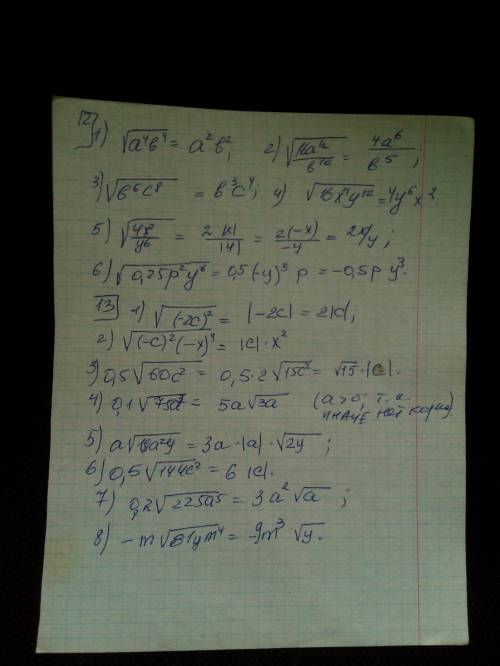 12] 1) √(a⁴b⁴) = a²b²; 2) √(16a¹²/b¹⁰) = 4a⁶/b⁵;
3) √(b⁶c⁸) = b³c⁴; 4) √(16x⁴y¹²) = 4y⁶x²
5) √(4x²/y⁶) = 2|x|/|y| = 2(-x)/-y = 2x/y;
6) √(0,25p²y⁶) = 0,5(-y)³ p = -0,5p y³.
13 1) √((-2c)²) = |-2c| = 2|c|;
2) √((-c)²(-x)⁴) = |c|·x²
3) 0,5√(60c²) = 0,5·2√(15c²) = √15·|c|.
4) 0,1√ = 5a√(3a) (a>0; т.к. иначе нет корня).
5) a√(18a²y) = 3a·|a|·√(2y);
6) 0,5√(144c²) = 6|c|.
7) 0,2√(225a⁵) = 3a²√a;
8) -m√(81ym⁴) = -9m³√y.